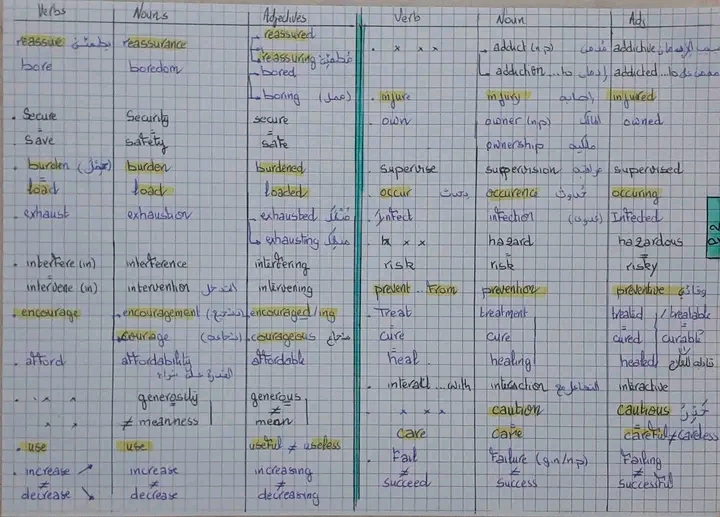 Verbs Nouns Adjectives Verb Noun Adj
reassue reassurance reassured
reassuring
bore boredom bored
boring (ممل)
. Secure Security secure
. Save safety safe
. burden burden burdened
load load loaded
. exhaust exhaustion exhausted
exhausting
. interfere (in) interference interfering
intervene (in) intervention التدخل intervening
. encourage encouragement encouraged/ing
courage (شجاعة) courageous شجاع
. afford affordability affordable
. × × generosity generous
× × ≠ meanness ≠ mean
. use use useful ≠ useless
. increase ↗ increase increasing
≠ decrease ↘ ≠ decrease ≠ decreasing
. × × × addict (n.p) addictive
addiction...to addicted...to
. injure injury injured
. own owner (n.p) owned
ownership
. supervise suppervision supervised
. occur occurence occuring
. Infect infection (عدوى) Infected
× × hazard hazardous
risk risk risky
prevent...from prevention preventive
. Treat treatment treated / treatable
cure cure cured curable
heal healing healed
. interact...with interaction interactive
. × × × caution cautious حذر
care care careful ≠ careless
. Fail Failure (g.n/n.p) Failing
≠ succeed ≠ success ≠ successful